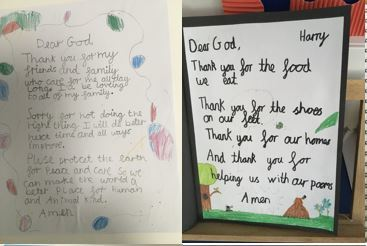 Dear God
Thank you for my
friends and family
who care for me all day
long. I be loveing
to all of my family.
Sorry for not doing the
right thing I will do better
next time and all ways
improve.
protect the earth
for Peace and care so we
can make the world a
better place for human
and Animal kind.
Amen
Harry
Dear God,
Thank you for the food
we eat
Thank you for the shoes
on our feet.
Thank you for our homes
And thank you for
helping us with our poems
Amen